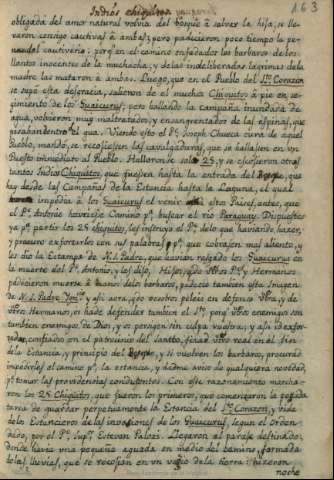 Indios chiquitos
163
obligada del amor natural volvia del bosque à salvar la hija, se lle-
varon consigo cautivas à ambas; pero padecieron poco tiempo la pe-
cautiverio: porq. en el camino enfadados los barbaros de los
llantos inocentes de la muchacha, y de las indeliberadas lagrimas de la
madre las mataron à ambas. Luego, que en el Pueblo del Sto. Corazon
se supo esta desgracia, salieron de el muchos Chiquitos à pie en se-
guimiento de los Guaicurus; pero hallando la campaña inundada de
agua, volvieron muy maltratados, y ensangrentados de las espinas, que
el agua. Viendo esto el Pe. Joseph Chueca cura de aquel
Pueblo, mandò, se recogiessen las cavalgaduras, que se hallassen en un
Puesto inmediato al Pueblo. Hallaronse solo 25, y se escogieron otros
tantos Indios Chiquitos, que fuessen hasta la entrada del Bosque, que
hay desde las Campañas de la Estancia hasta la Laguna, el qual
impedia à los Guaicurus el venir à estos Paises, antes, que
el Pe. Antonio hiciesse Camino pa. buscar el rio Paraguay. Dispuestos
ya pa. partir los 25 chiquitos, les instruyò el Pe. de lo que havian de hacer,
y procurò exfortarlos con sus palabras, y pa. que cobrassen mas aliento,
les diò la Estampa de N. S. Padre, que havian rasgado los Guaicurus en
la muerte del Pe. Antonio, y les dijo, Hijos, y Hermanos
padecieron muerte à manos de los barbaros, padeciò tambien esta Imagen
de N. S. Padre y assi aora, vosotros peleais en defensa y de
otros Hermanos, os hade defender tambien el Sto. porq. vtros enemigos son
tambien enemigos de Dios, y os persiguen sin culpa vuestra;
confiados en el patrocinio del Santo,
de la Estancia, y principio del Bosque, y si vuelven los barbaros, procurad
impedirles el camino pa. la estancia, y dadme aviso de qualquiera novedad,
pa. tomar las providencias conducentes. Con este razonamiento marcha-
ron los 25 Chiquitos, que fueron los primeros, que comenzaron la
tarea de guardar perpetuamente la Estancia del Sto. Corazon, y vida
de los Estancieros de las invasiones de los Guaicurus, segun el orden
dado, por el Pe. Supr. Estevan Palozi. Llegaron al parage destinado,
donde havia una pequeña aguada en medio del camino, formada
de las lluvias, que se recogian en un vagio de la tierra: hicieron
noche